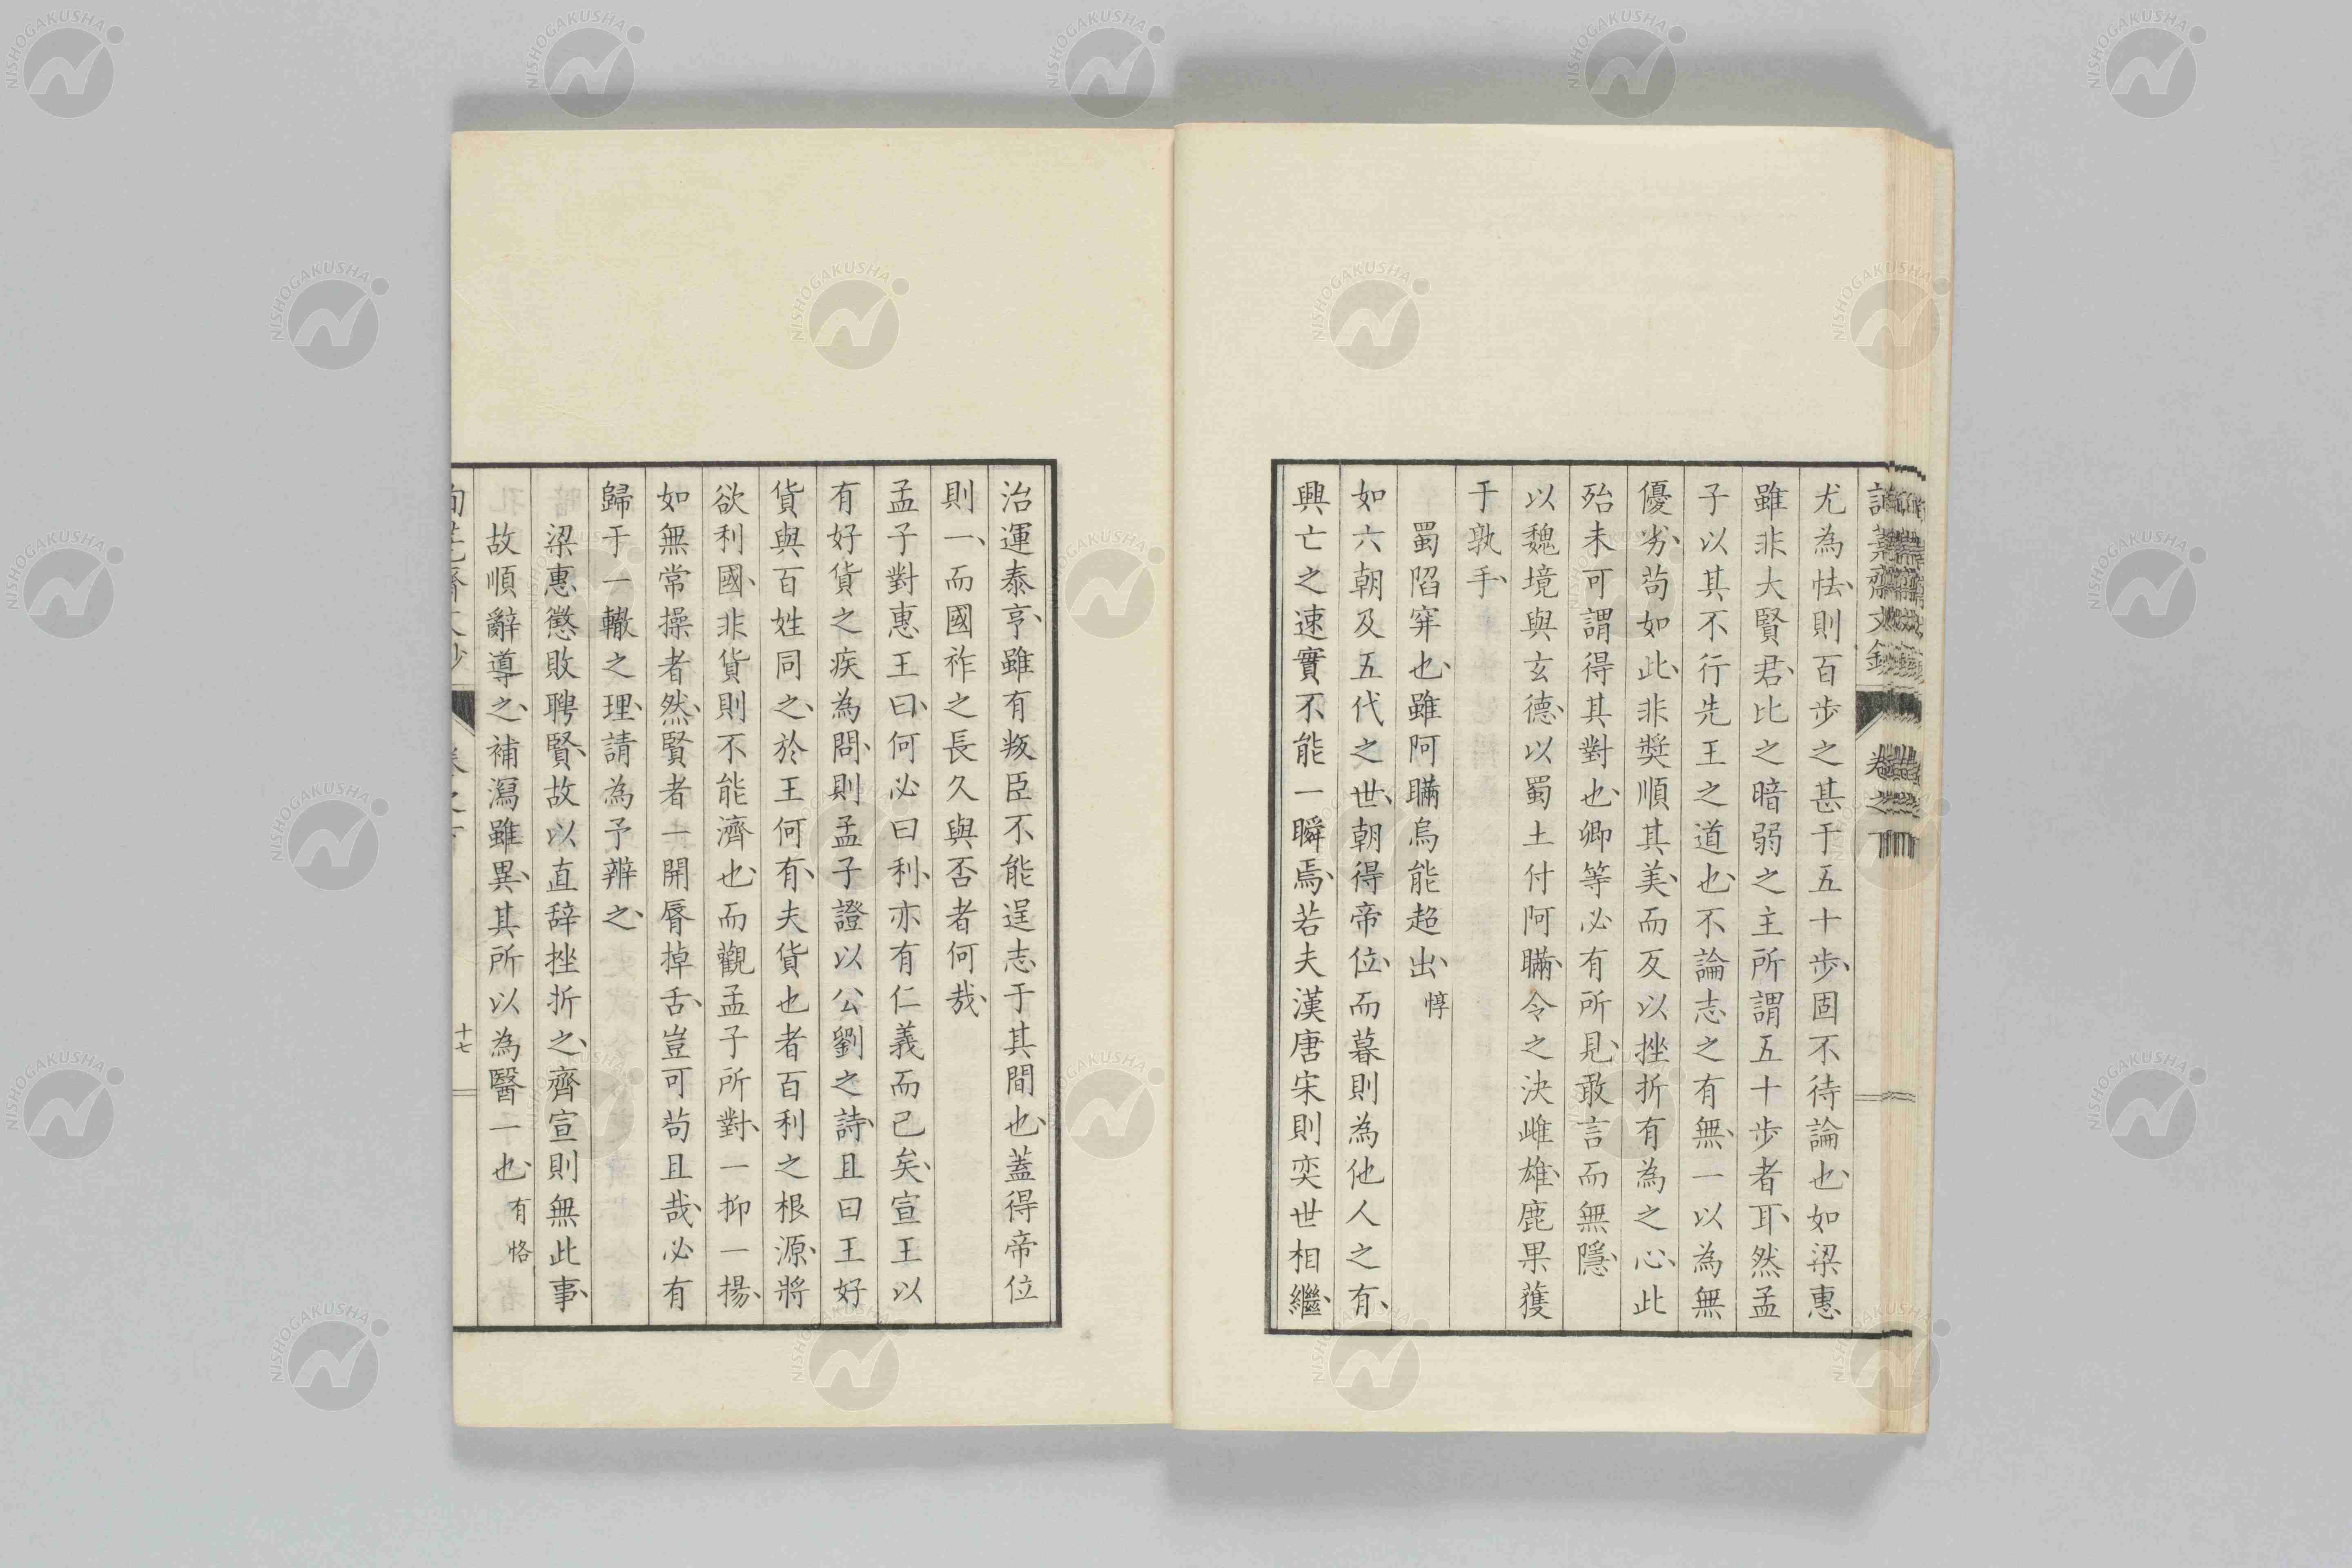 尤為怯、則百步之甚于五十步、固不待論也、如梁惠
雖非大賢君、比之暗弱之主所謂五十步者耳、然孟
子以其不行先王之道也、不論志之有無、一以為無
優劣、苟如此、非奬順其美、而反以挫折有為之心、此
殆未可謂得其對也、卿等必有所見、敢言而無隱、
以魏境與玄德、以蜀土付阿瞞、令之決雌雄、鹿果獲
于孰手、
蜀陷穽也、雖阿瞞烏能超出、惇
如六朝及五代之世、朝得帝位、而暮則為他人之有、
興亡之速實不能一瞬焉、若夫漢唐宋則奕世相繼、
治運泰亨、雖有叛臣不能逞志于其間也、蓋得帝位
則一、而國祚之長久與否者何哉、
孟子對惠王曰、何必曰利、亦有仁義而已矣、宣王以
有好貨之疾為問、則孟子證以公劉之詩、且曰王好
貨與百姓同之、於王何有、夫貨也者百利之根源、將
欲利國、非貨則不能濟也、而觀孟子所對、一抑一揚、
如無常操者然、賢者一開脣掉舌、豈可苟且哉、必有
歸于一轍之理、請為予辨之、
梁惠懲敗聘賢、故以直辞挫折之、齊宣則無此事、
故順辭導之、補瀉雖異、其所以為醫一也、有恪
十七
NISHOGAKUSHA